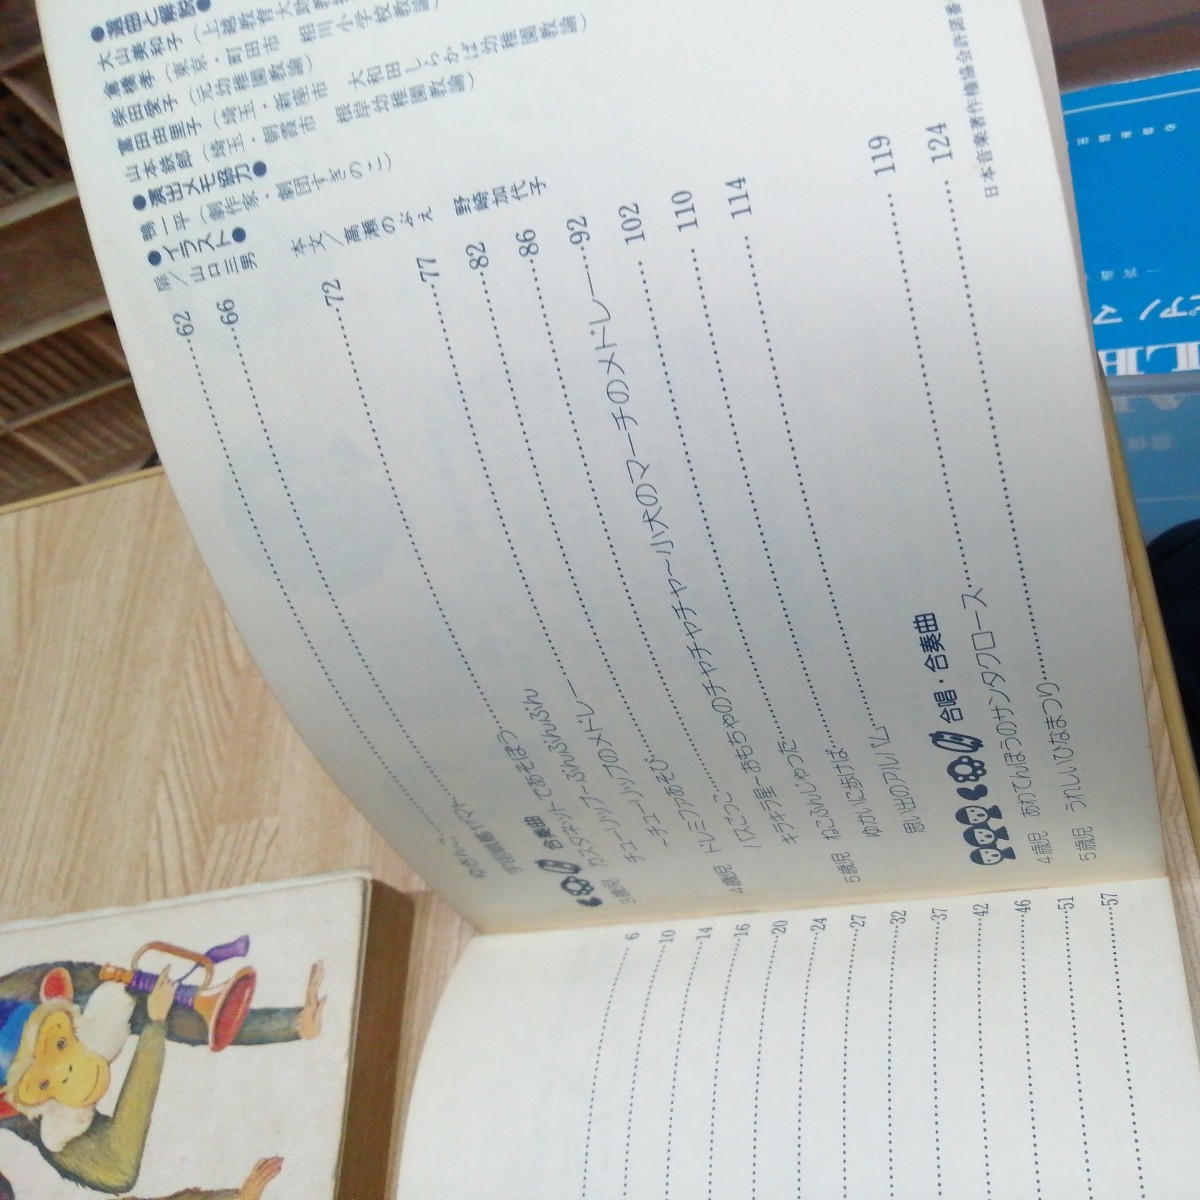 ゆきわんこ……62
宇宙戦艦ヤマト……66
合奏曲
3歳児 カスタネットであそぼう……72
チューリップ～ぶんぶんぶん
～チューリップのメドレー……77
ドレミファあそび……82
4歳児
バスごっこ……86
キラキラ星～おもちゃのチャチャチャ～小犬のマーチのメドレー……92
5歳児 ねこふんじゃった……102
ゆかいに歩けば……110
思い出のアルバム……114
合唱・合奏曲
4歳児 あわてんぼうのサンタクロース……119
5歳児 うれしいひなまつり……124
●選曲と解説●
大山美和子（上越教育大助教授
倉橋孝（東京・町田市 相川小学校教諭）
柴田愛子（元幼稚園教諭）
富田由里子（埼玉・新座市 大和田しらかば幼稚園教諭）
山本鉄郎（埼玉・朝霞市 根岸幼稚園教諭）
●演出メモ協力●
鴨一平（劇作家・劇団すぎのこ）
●イラスト●
扉／山口三男
本文／高瀬のぶえ
野崎加代子
日本音楽著作権協会許諾番
……6
……10
……14
……16
……20
……24
……27
……32
……37
……42
……46
……51
……57
ピアノ マ